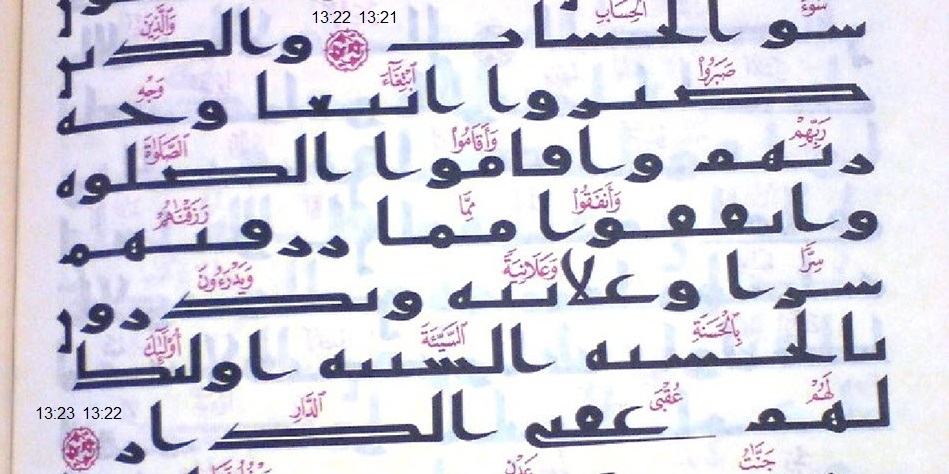 13:22 13:21
سُوٓءَ ٱلْحِسَابِ وَٱلَّذِينَ
سو الحساب والذين
صَبَرُوا۟ ٱبْتِغَآءَ وَجْهِ
صبروا ابتغا وجه
رَبِّهِمْ وَأَقَامُوا۟ ٱلصَّلَوٰةَ
ربهم واقاموا الصلوه
وَأَنفَقُوا۟ مِمَّا رَزَقْنَٰهُمْ
وانفقوا مما رزقنهم
سِرًّا وَعَلَانِيَةً وَيَدْرَءُونَ
سرا وعلانيه ويدرون
بِٱلْحَسَنَةِ ٱلسَّيِّئَةَ أُو۟لَٰٓئِكَ
بالحسنه السيئه اوليك
لَهُمْ عُقْبَى ٱلدَّارِ
لهم عقبى الدار
13:23 13:22
جَنَّٰتُ عَدْنٍ